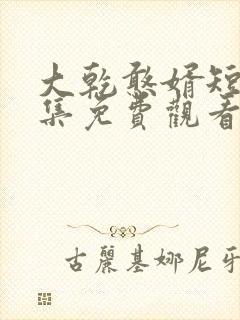 大乾憨婿短
集免費觀看
古麗基娜尼牙